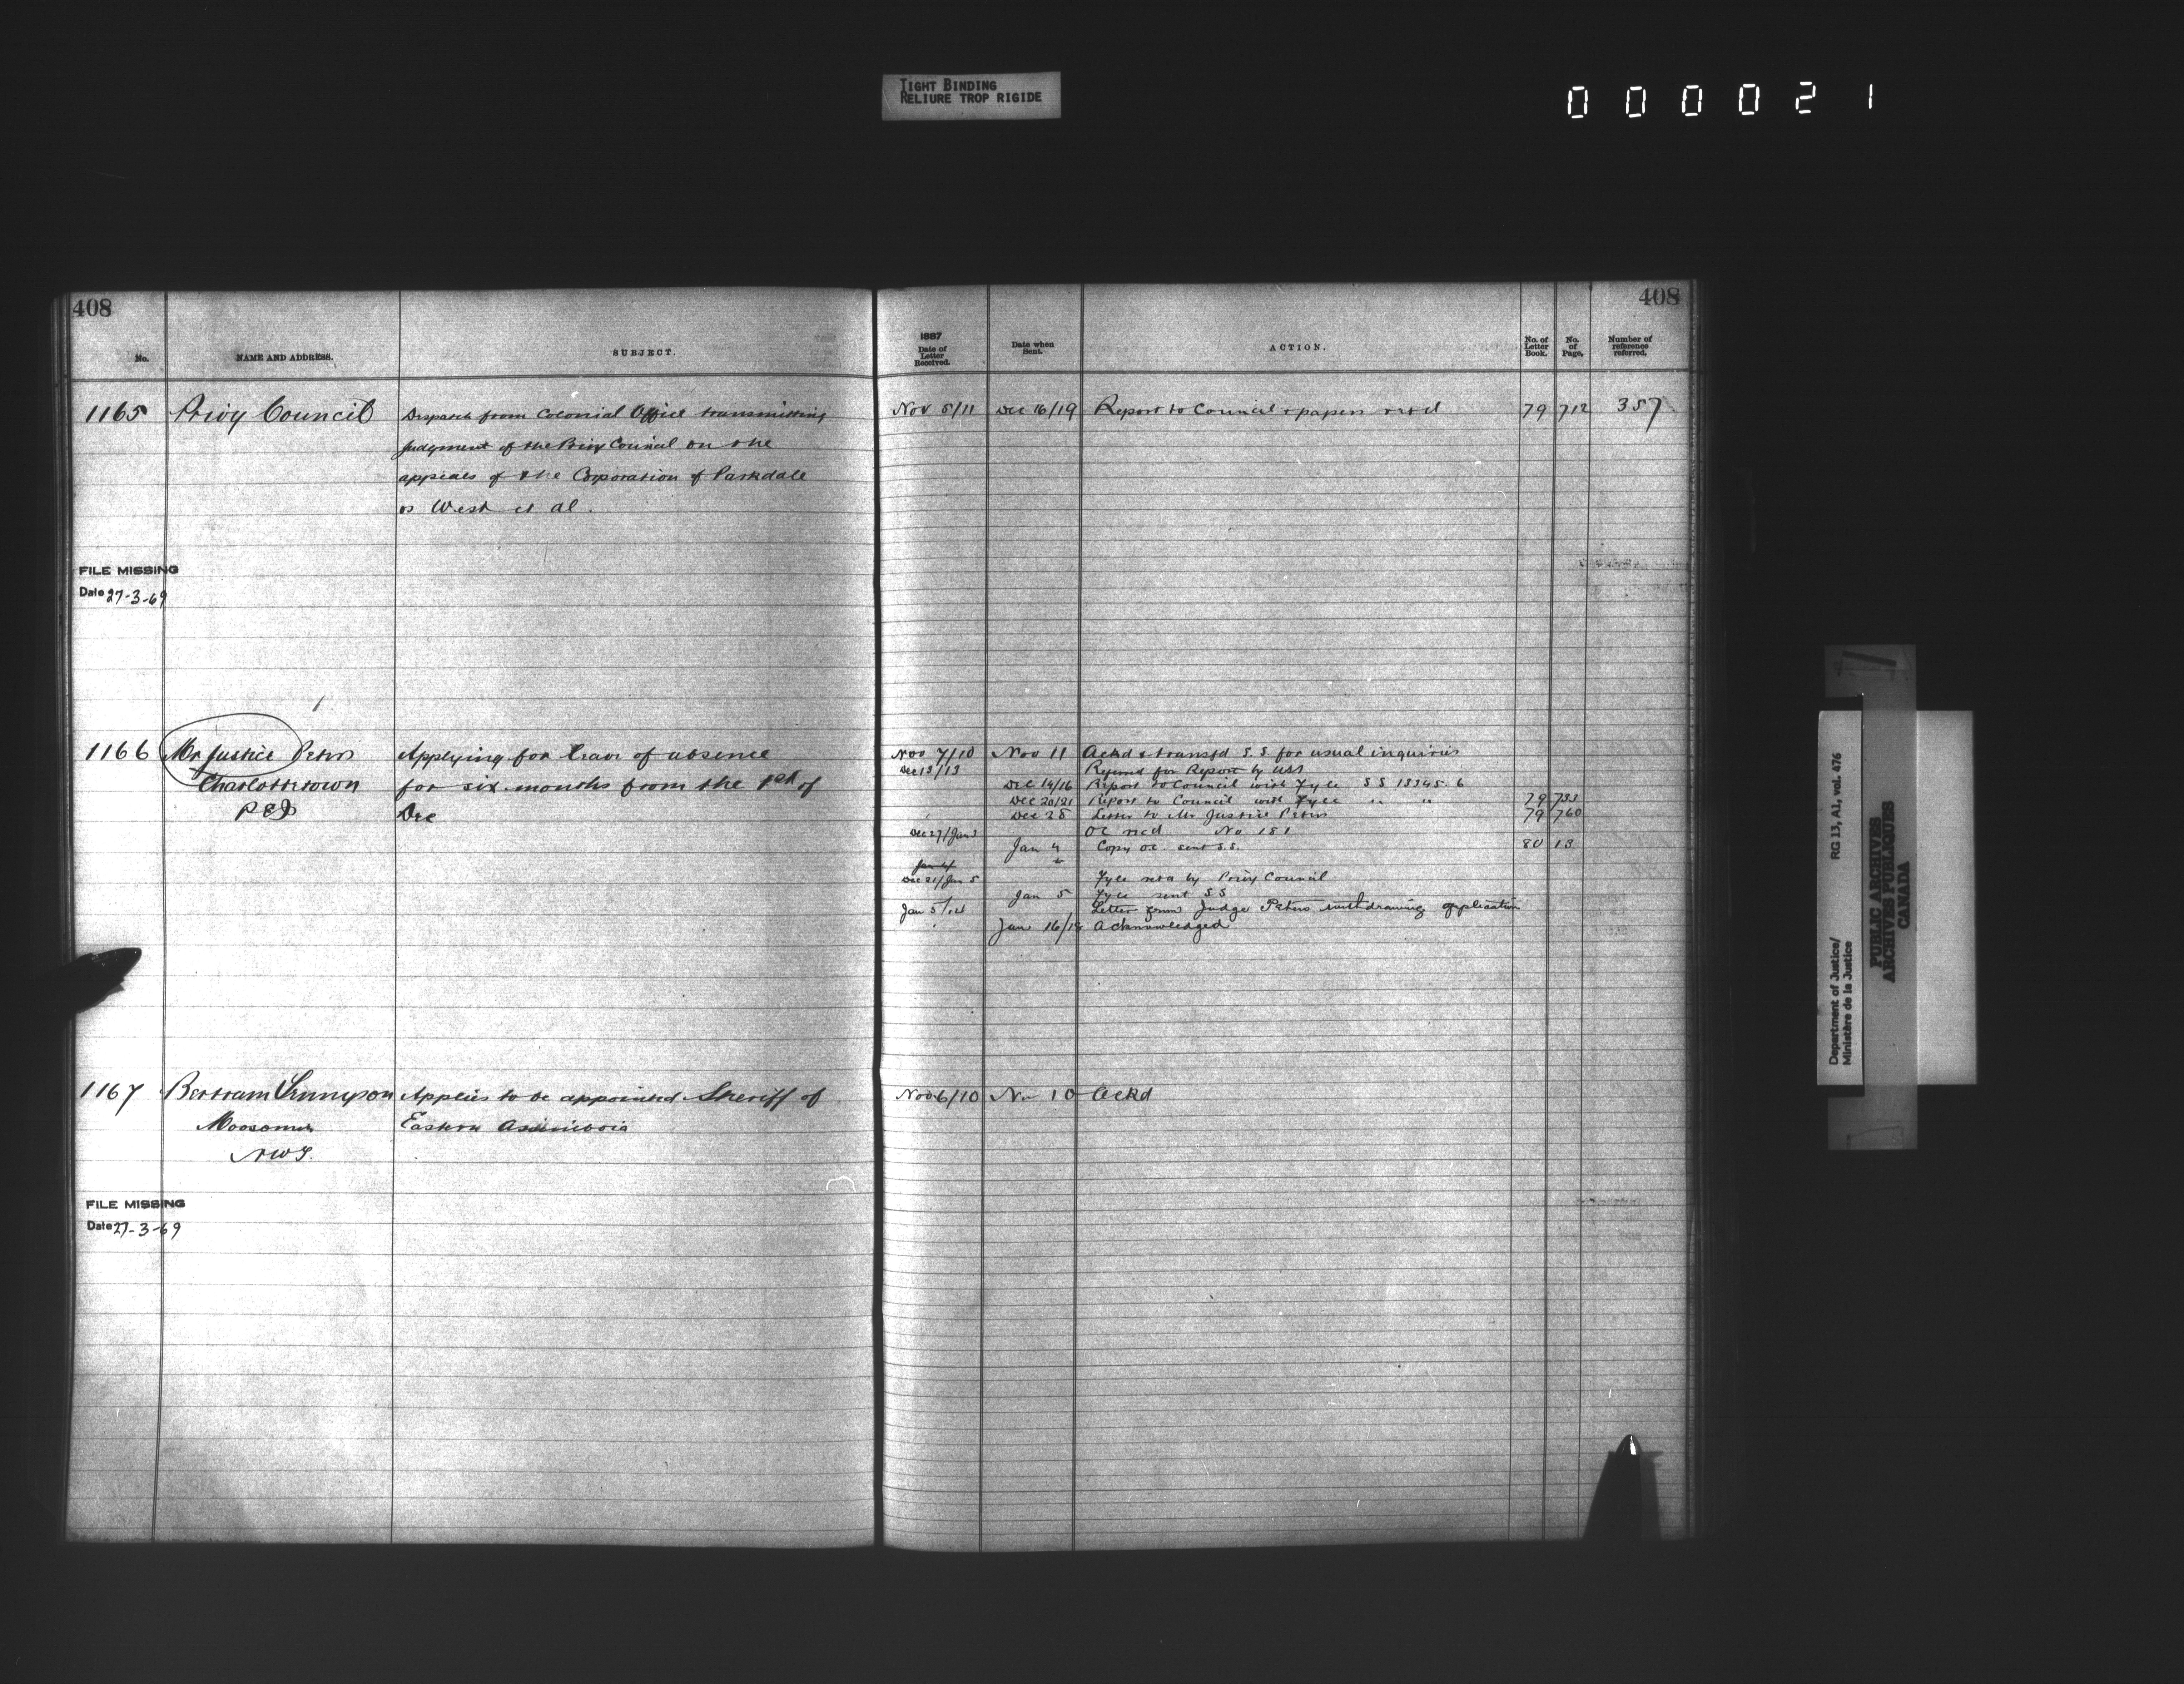 TIGHT BINDING
RELIURE TROP RIGIDE
000021
408
No.
NAME AND ADDRESS.
SUBJECT.
1165 Privy Council Despatch from Colonial Office transmitting
judgment of the Privy Council on the
appeals of the Corporation of Parkdale
vs West et al.
FILE MISSING
Date 27-3-69
1166 Mr Justice Peters Applying for leave of absence
Charlottetown for six months from the 1st of
PEI Dec
1167 Bertram Applies to be appointed Sheriff of
Moosomin Eastern Assiniboia
NWT.
FILE MISSING
Date 27-3-69
408
1887
Date of
Letter
Received.
Date when
Sent.
ACTION.
No. of
Letter
Book.
No.
of
Page.
Number of
reference
referred.
Nov 5/11 Dec 16/19 Report to Council & papers retd 79 712 357
Nov 7/10 Nov 11 Ackd & transfd S.S. for usual inquiries
Dec 13/13 Referred for Report by USS
Dec 14/16 Report to Council with Fyle SS 13345.6
Dec 20/21 Report to Council with Fyle " " 79 733
Dec 28 Letter to Mr Justice Peters 79 760
Dec 27/Jan 3 OC recd No 181
Jan 4 Copy O.C. sent S.S. 80 13
Jan 4
Dec 21/Jan 5 Fyle retd by Privy Council
Jan 5 Fyle sent SS
Jan 5/14 Letter from Judge Peters withdrawing application
Jan 16/18 Acknowledged
Nov 6/10 Nov 10 Ackd
Department of Justice/ RG 13, A1, vol. 476
Ministère de la Justice
PUBLIC ARCHIVES
ARCHIVES PUBLIQUES
CANADA